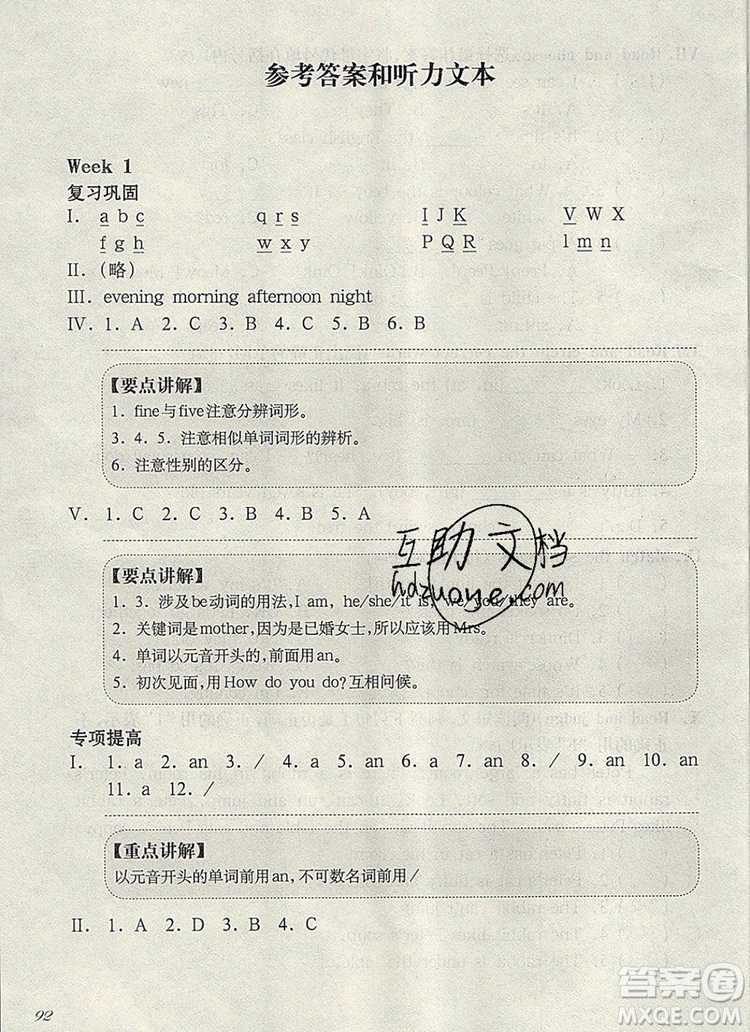 参考答案和听力文本
Week 1
复习巩固
I. a b c q r s I J K V W X
f g h w x y P Q R l m n
II. (略)
III. evening morning afternoon night
IV. 1. A 2. C 3. B 4. C 5. B 6. B
【要点讲解】
1. fine与five注意分辨词形。
3. 4. 5. 注意相似单词词形的辨析。
6. 注意性别的区分。
V. 1. C 2. C 3. B 4. B 5. A
互助文档
hdzuoye.com
【要点讲解】
1. 3. 涉及be动词的用法,I am, he/she/it is, we/you/they are。
2. 关键词是mother,因为是已婚女士,所以应该用Mrs。
4. 单词以元音开头的,前面用an。
5. 初次见面,用How do you do?互相问候。
专项提高
I. 1. a 2. an 3. / 4. a 5. an 6. a 7. an 8. / 9. an 10. an
11. a 12. /
【重点讲解】
以元音开头的单词前用an,不可数名词前用/
II. 1. A 2. D 3. B 4. C
92
答案圈
MXQE.COM